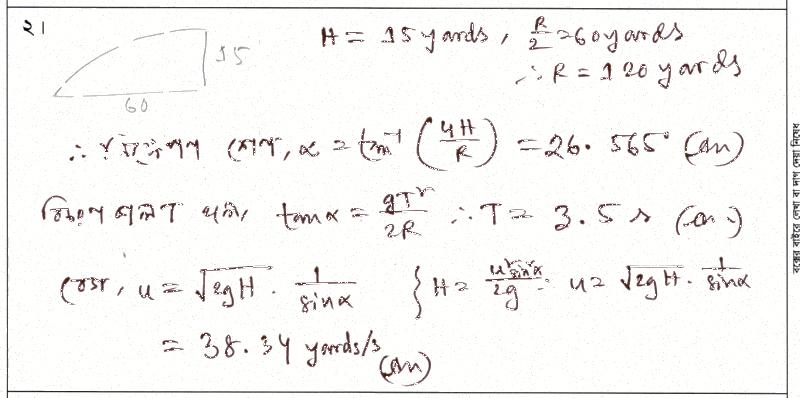 ২।
15
60
H = 15 yards, R/2 = 60 yards
∴ R = 120 yards
∴ নিক্ষেপণ কোণ, α = tan⁻¹ (4H/R) = 26.565° (Ans)
বিচরণকাল T হলে, tanα = gT²/2R ∴ T = 3.5 s (Ans)
বেগ, u = √2gH · 1/sinα } H = u²sin²α/2g ∴ u = √2gH · 1/sinα
= 38.34 yards/s (Ans)
বক্সের বাইরে লেখা বা দাগ দেয়া নিষেধ